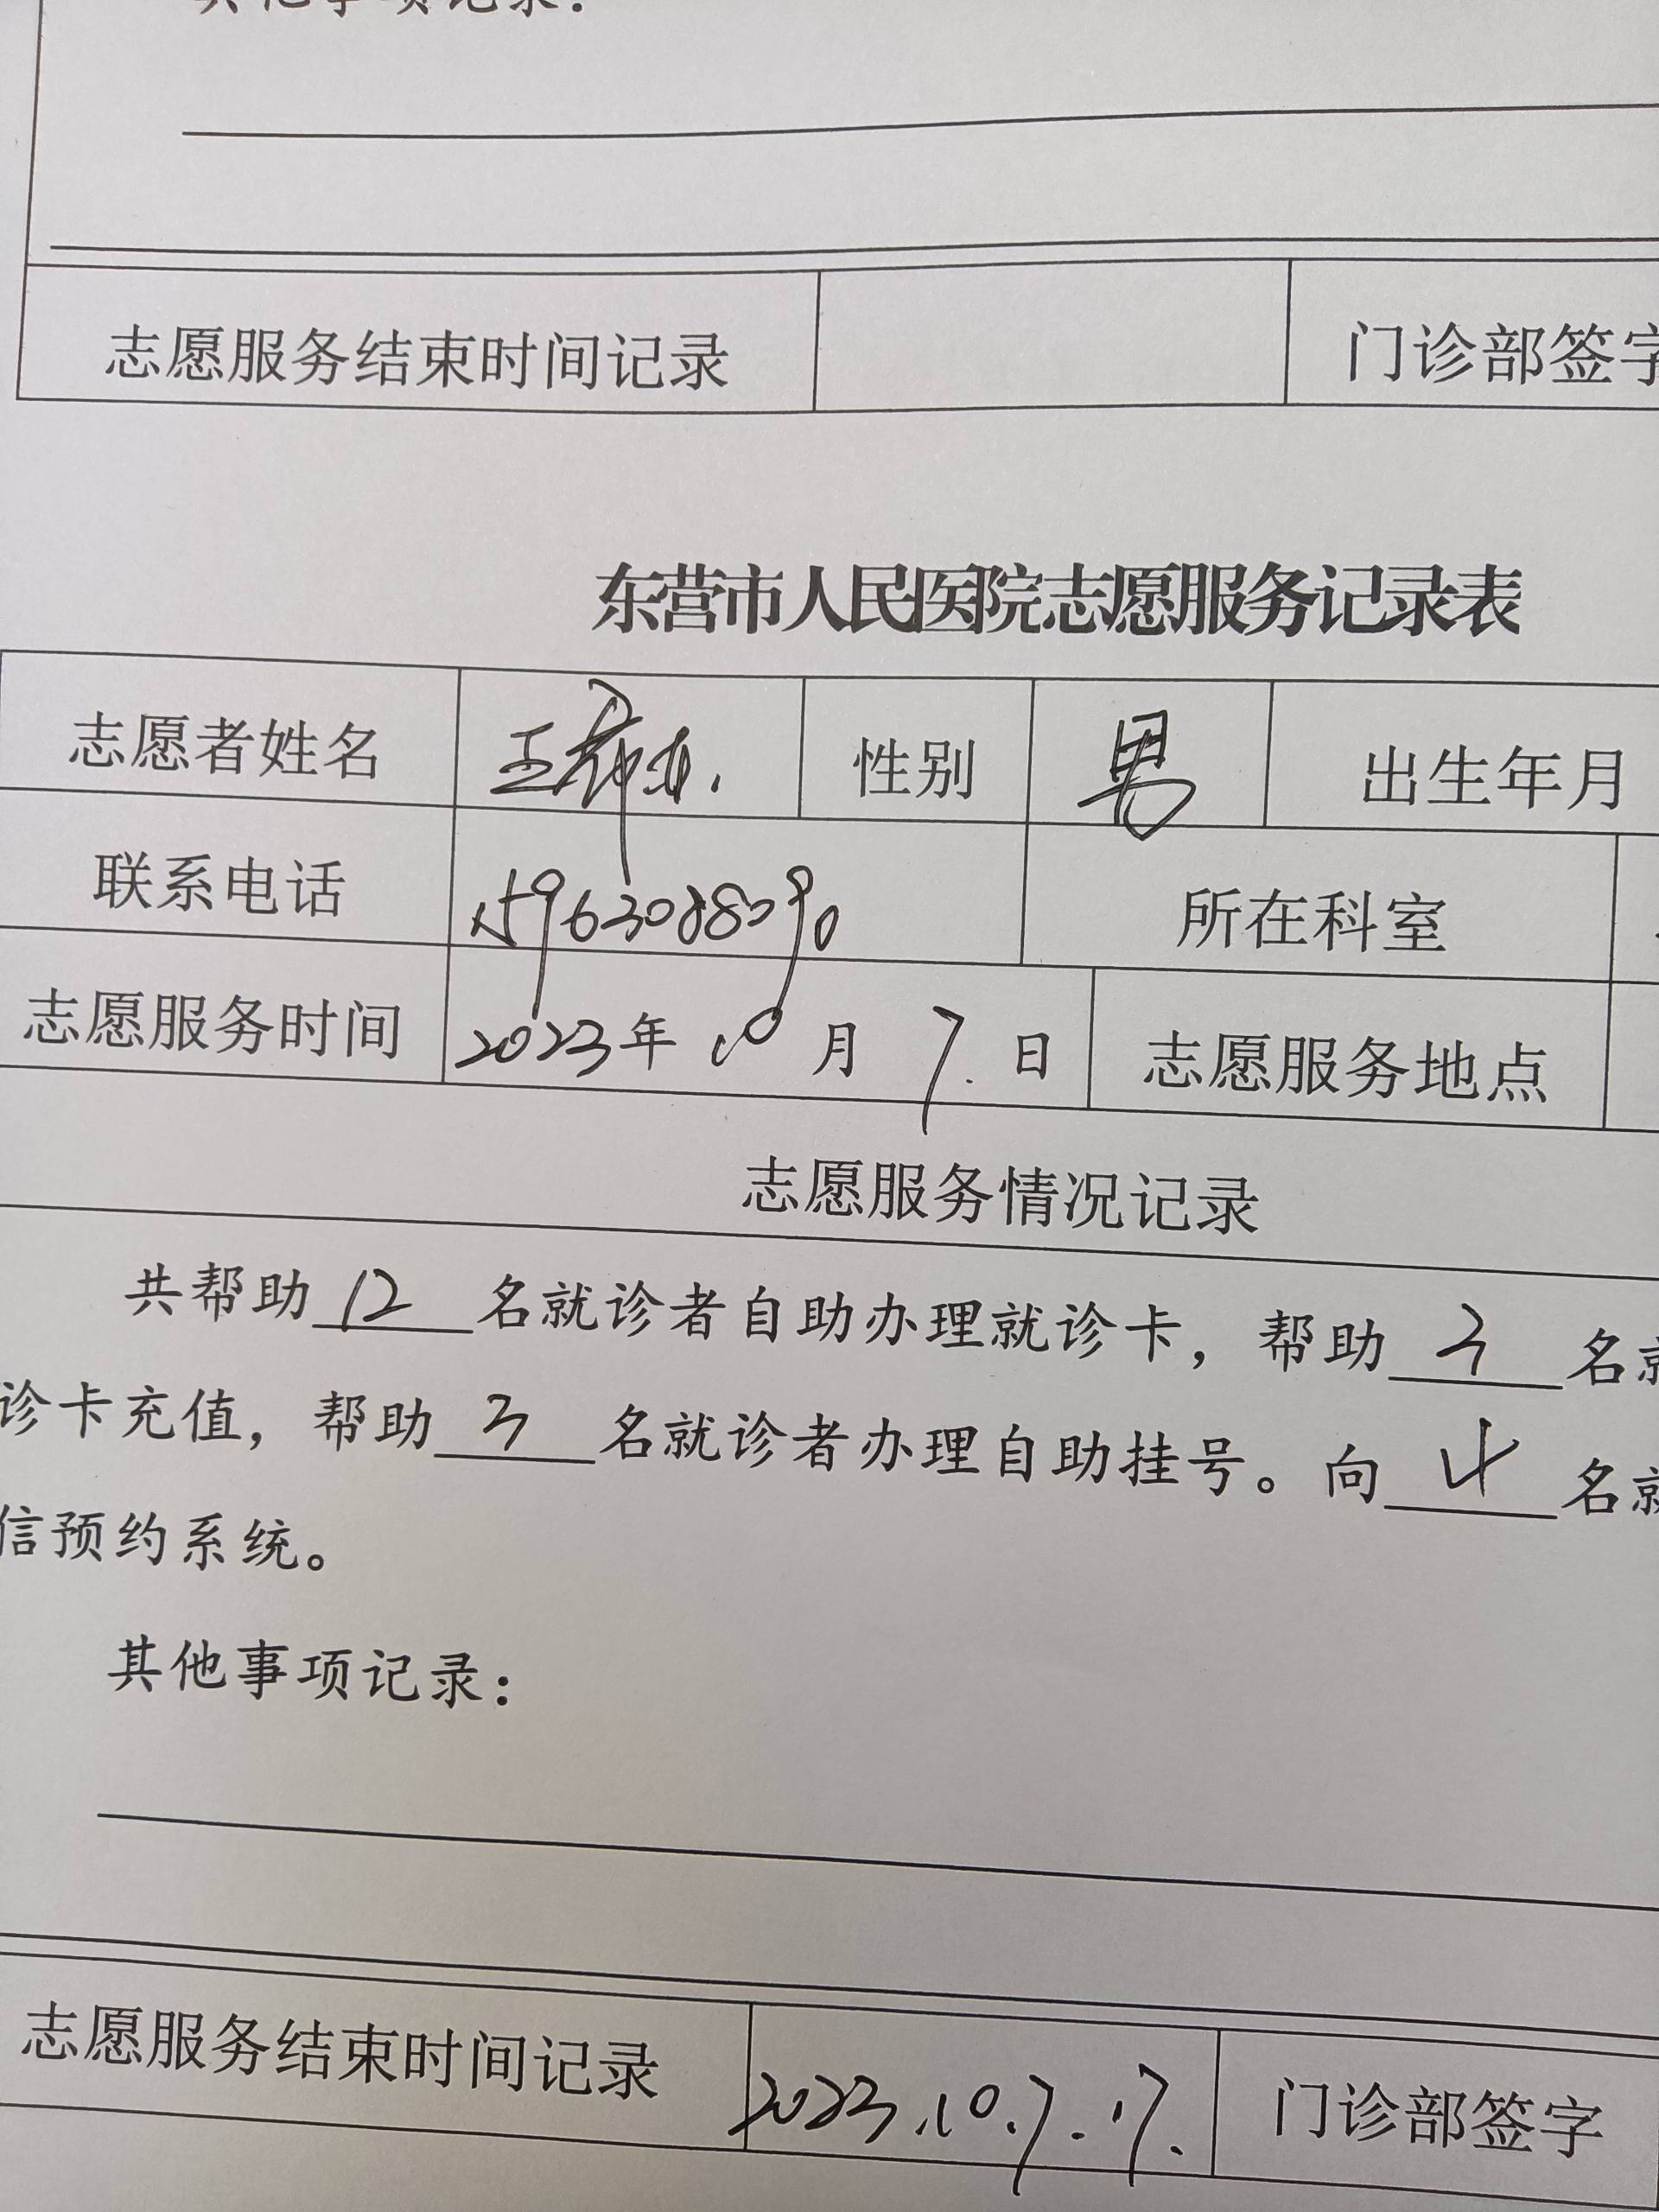 其他事项记录：
志愿服务结束时间记录 门诊部签字
东营市人民医院志愿服务记录表
志愿者姓名 王 性别 男 出生年月
联系电话 15963088090 所在科室
志愿服务时间 2023年 10 月 7. 日 志愿服务地点
志愿服务情况记录
共帮助 12 名就诊者自助办理就诊卡，帮助 3 名就
诊卡充值，帮助 3 名就诊者办理自助挂号。向 4 名就
信预约系统。
其他事项记录：
志愿服务结束时间记录 2023.10.7.17. 门诊部签字